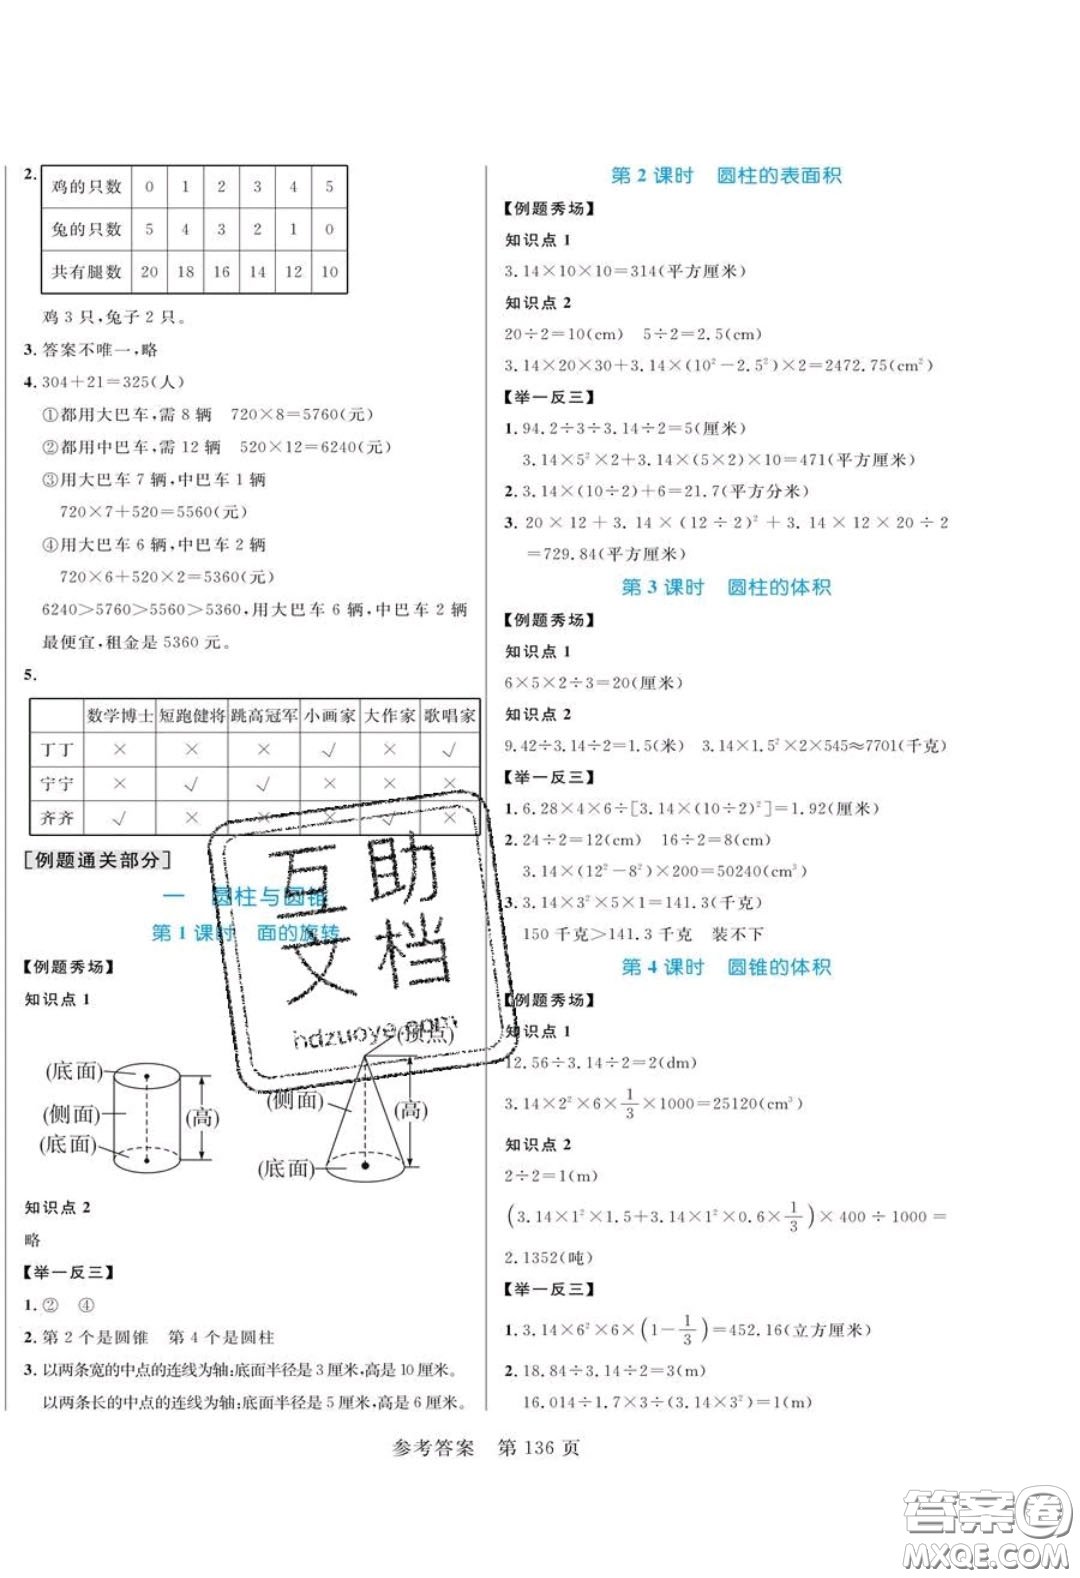 2.
鸡的只数 0 1 2 3 4 5
兔的只数 5 4 3 2 1 0
共有腿数 20 18 16 14 12 10
鸡 3 只,兔子 2 只。
3. 答案不唯一,略
4. 304+21=325(人)
①都用大巴车,需 8 辆 720×8=5760(元)
②都用中巴车,需 12 辆 520×12=6240(元)
③用大巴车 7 辆,中巴车 1 辆
720×7+520=5560(元)
④用大巴车 6 辆,中巴车 2 辆
720×6+520×2=5360(元)
6240>5760>5560>5360,用大巴车 6 辆,中巴车 2 辆
最便宜,租金是 5360 元。
5.
数学博士 短跑健将 跳高冠军 小画家 大作家 歌唱家
丁丁 × × × √ × √
宁宁 × √ √ × × ×
齐齐 √ × × × √ ×
[例题通关部分]
一 圆柱与圆锥
第 1 课时 面的旋转
【例题秀场】
知识点 1
(底面)
(侧面)
(底面)
(高)
(顶点)
(侧面)
(高)
(底面)
知识点 2
略
【举一反三】
1. ② ④
2. 第 2 个是圆锥 第 4 个是圆柱
3. 以两条宽的中点的连线为轴:底面半径是 3 厘米,高是 10 厘米。
以两条长的中点的连线为轴:底面半径是 5 厘米,高是 6 厘米。
第 2 课时 圆柱的表面积
【例题秀场】
知识点 1
3.14×10×10=314(平方厘米)
知识点 2
20÷2=10(cm) 5÷2=2.5(cm)
3.14×20×30+3.14×(10²-2.5²)×2=2472.75(cm²)
【举一反三】
1. 94.2÷3÷3.14÷2=5(厘米)
3.14×5²×2+3.14×(5×2)×10=471(平方厘米)
2. 3.14×(10÷2)+6=21.7(平方分米)
3. 20×12+3.14×(12÷2)²+3.14×12×20÷2
=729.84(平方厘米)
第 3 课时 圆柱的体积
【例题秀场】
知识点 1
6×5×2÷3=20(厘米)
知识点 2
9.42÷3.14÷2=1.5(米) 3.14×1.5²×2×545≈7701(千克)
【举一反三】
1. 6.28×4×6÷[3.14×(10÷2)²]=1.92(厘米)
2. 24÷2=12(cm) 16÷2=8(cm)
3.14×(12²-8²)×200=50240(cm²)
3. 3.14×3²×5×1=141.3(千克)
150 千克>141.3 千克 装不下
第 4 课时 圆锥的体积
【例题秀场】
知识点 1
12.56÷3.14÷2=2(dm)
3.14×2²×6×1/3×1000=25120(cm³)
知识点 2
2÷2=1(m)
(3.14×1²×1.5+3.14×1²×0.6×1/3)×400÷1000=
2.1352(吨)
【举一反三】
1. 3.14×6²×6×(1-1/3)=452.16(立方厘米)
2. 18.84÷3.14÷2=3(m)
16.014÷1.7×3÷(3.14×3²)=1(m)
参考答案 第 136 页
互助
文档
hdzuoye.com
答案卷
MXQE.COM